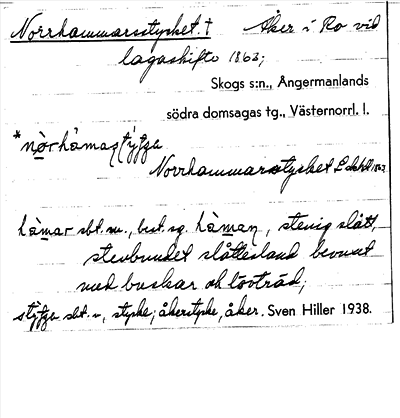 Norrhammarsstycket. † Åker i Ro vid
lagaskifte 1863;
Skogs s:n., Ångermanlands
södra domsagas tg., Västernorrl. l.
Norrhammarstycket L akt 1863
hàmar sbt. m., best. sg. hàmaṇ, stenig slått,
stenbundet slåttesland bevuxet
med buskar och lövträd;
sbt. n, stycke; åkerstycke, åker. Sven Hiller 1938.